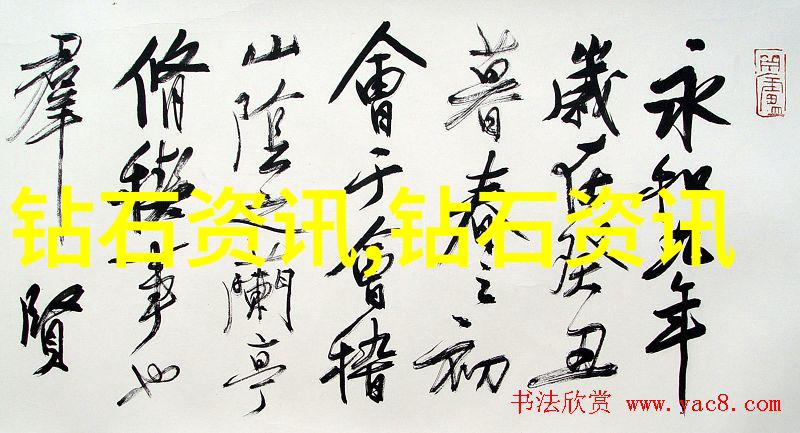 永和九年
歲在癸丑
暮春之初
會于會稽
山陰之蘭亭
脩稧事也
羣賢
钻石资讯,钻石资讯
书法欣赏 www.yac8.com